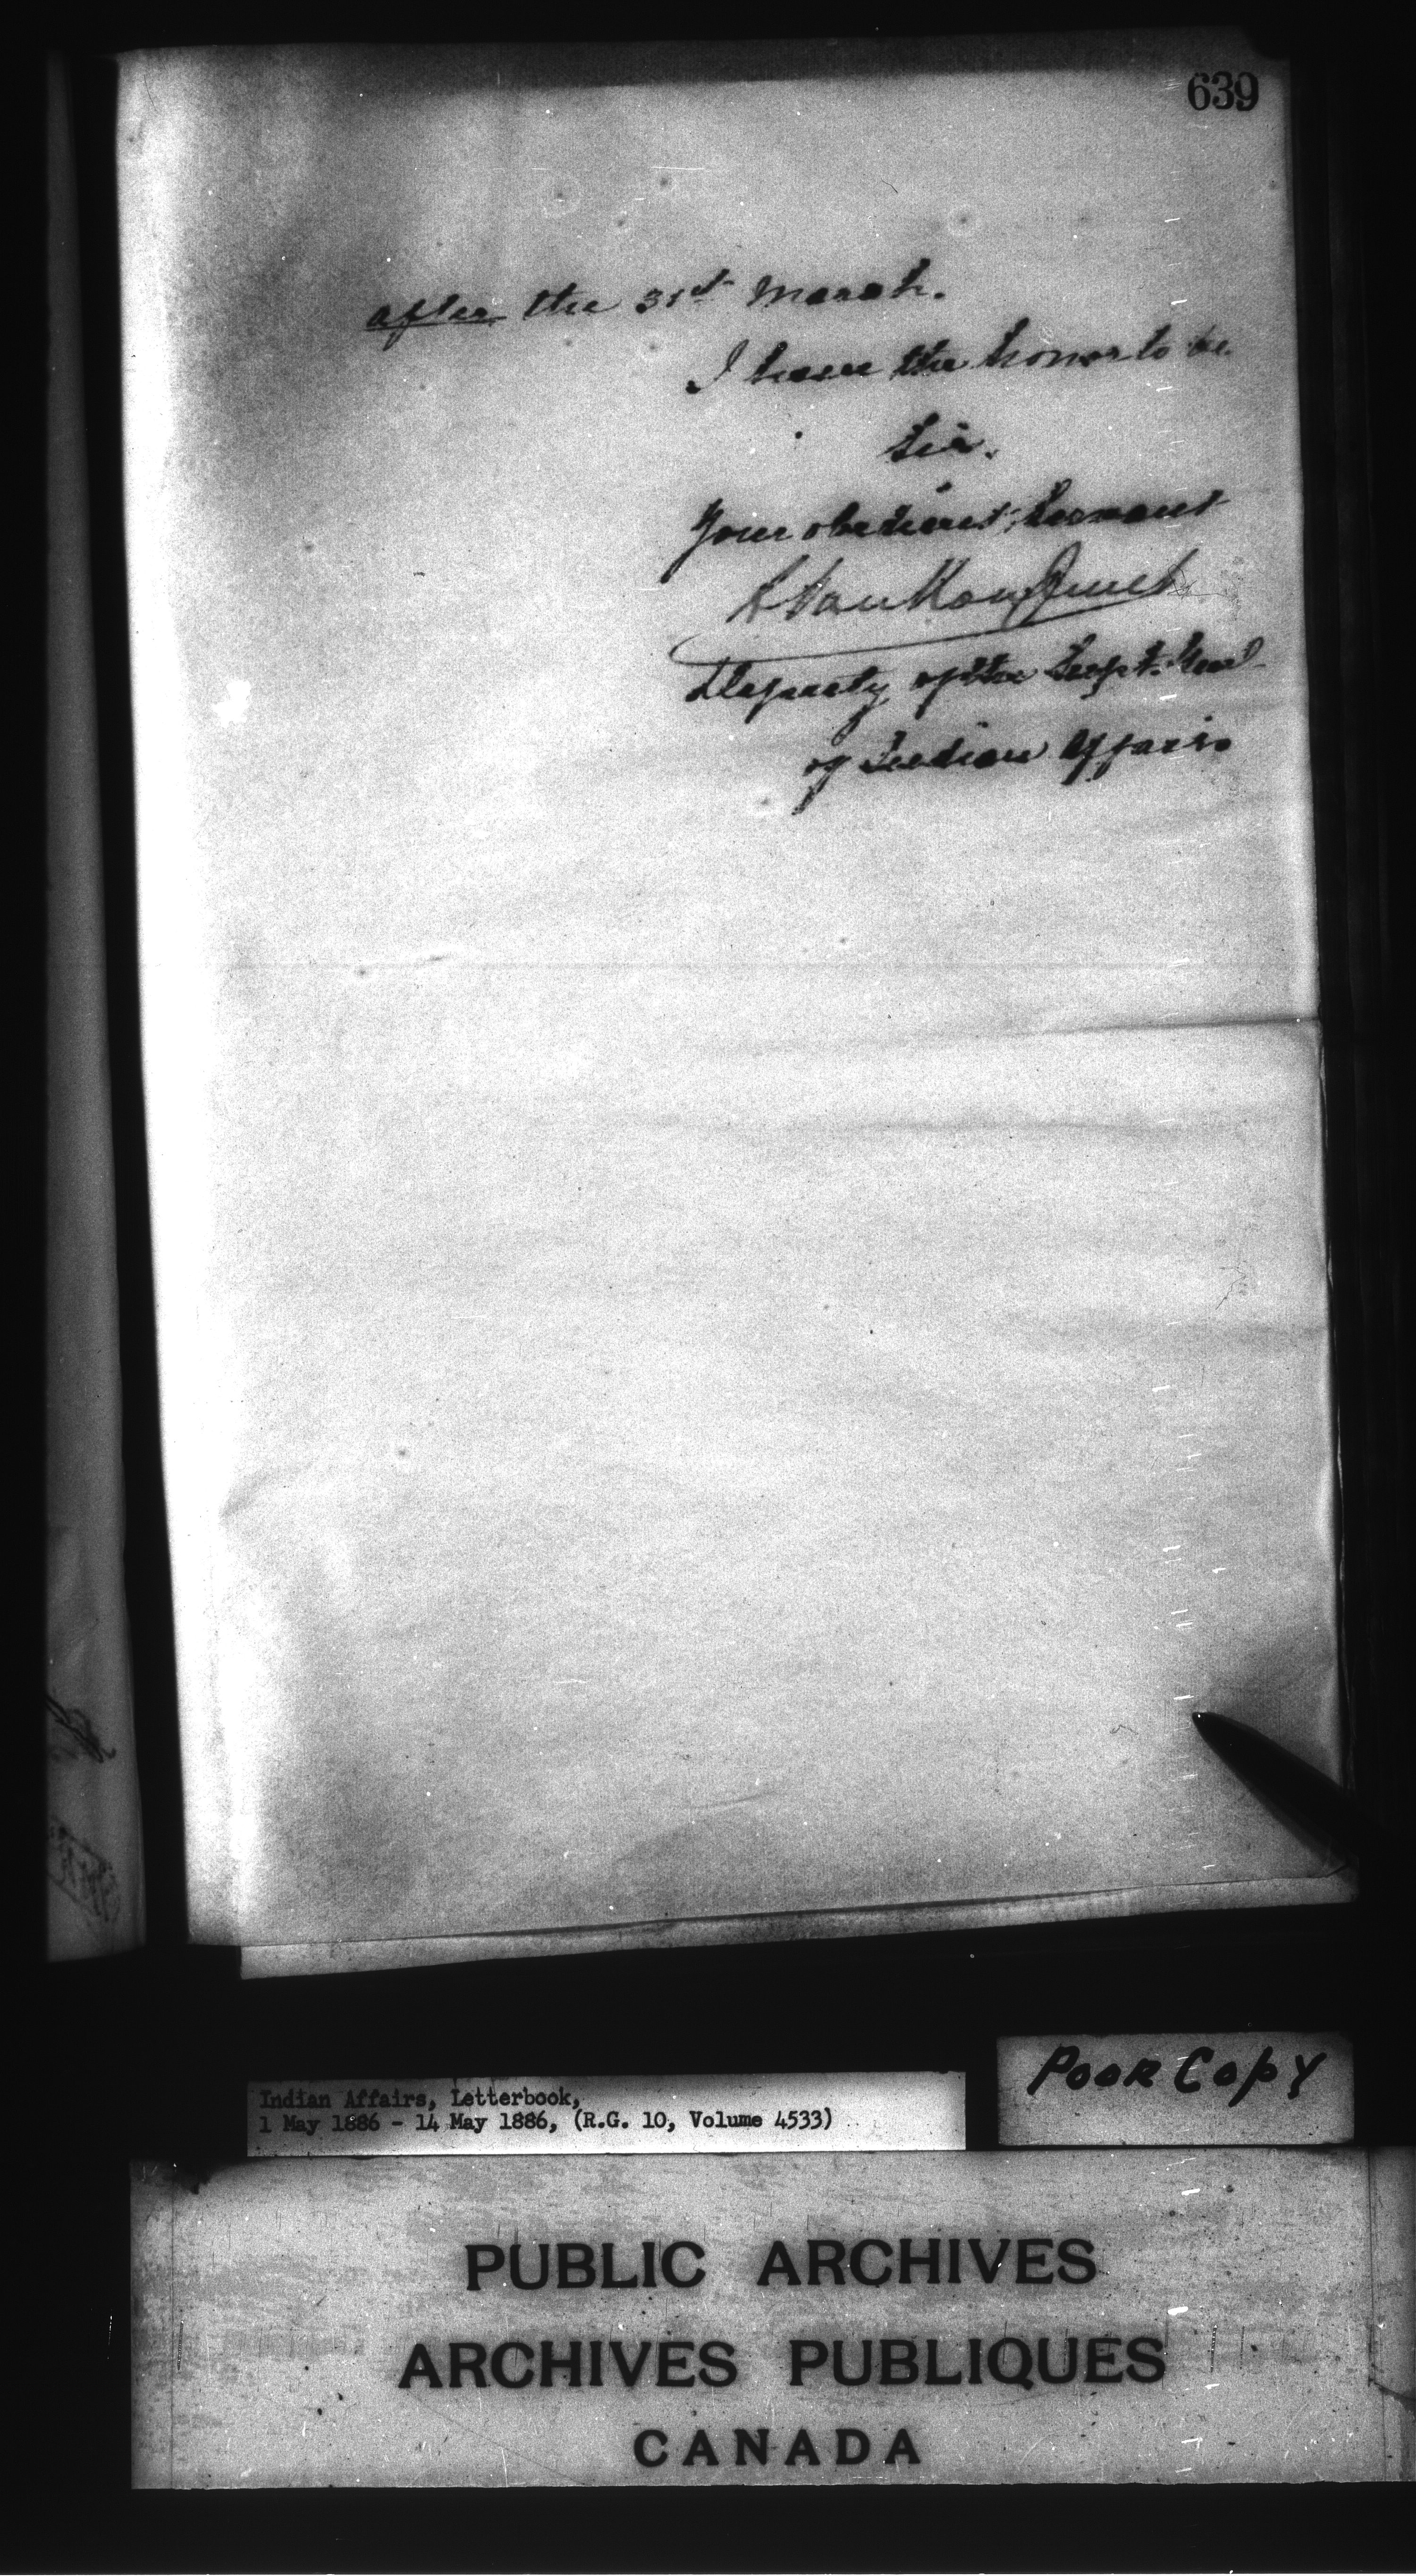 639
after the 31st March.
I have the honor to be
Sir.
Your obedient Servant
L VanKoughnet
Deputy of the Supt. Genl
of Indian Affairs
Poor Copy
Indian Affairs, Letterbook,
1 May 1886 - 14 May 1886, (R.G. 10, Volume 4533)
PUBLIC ARCHIVES
ARCHIVES PUBLIQUES
CANADA